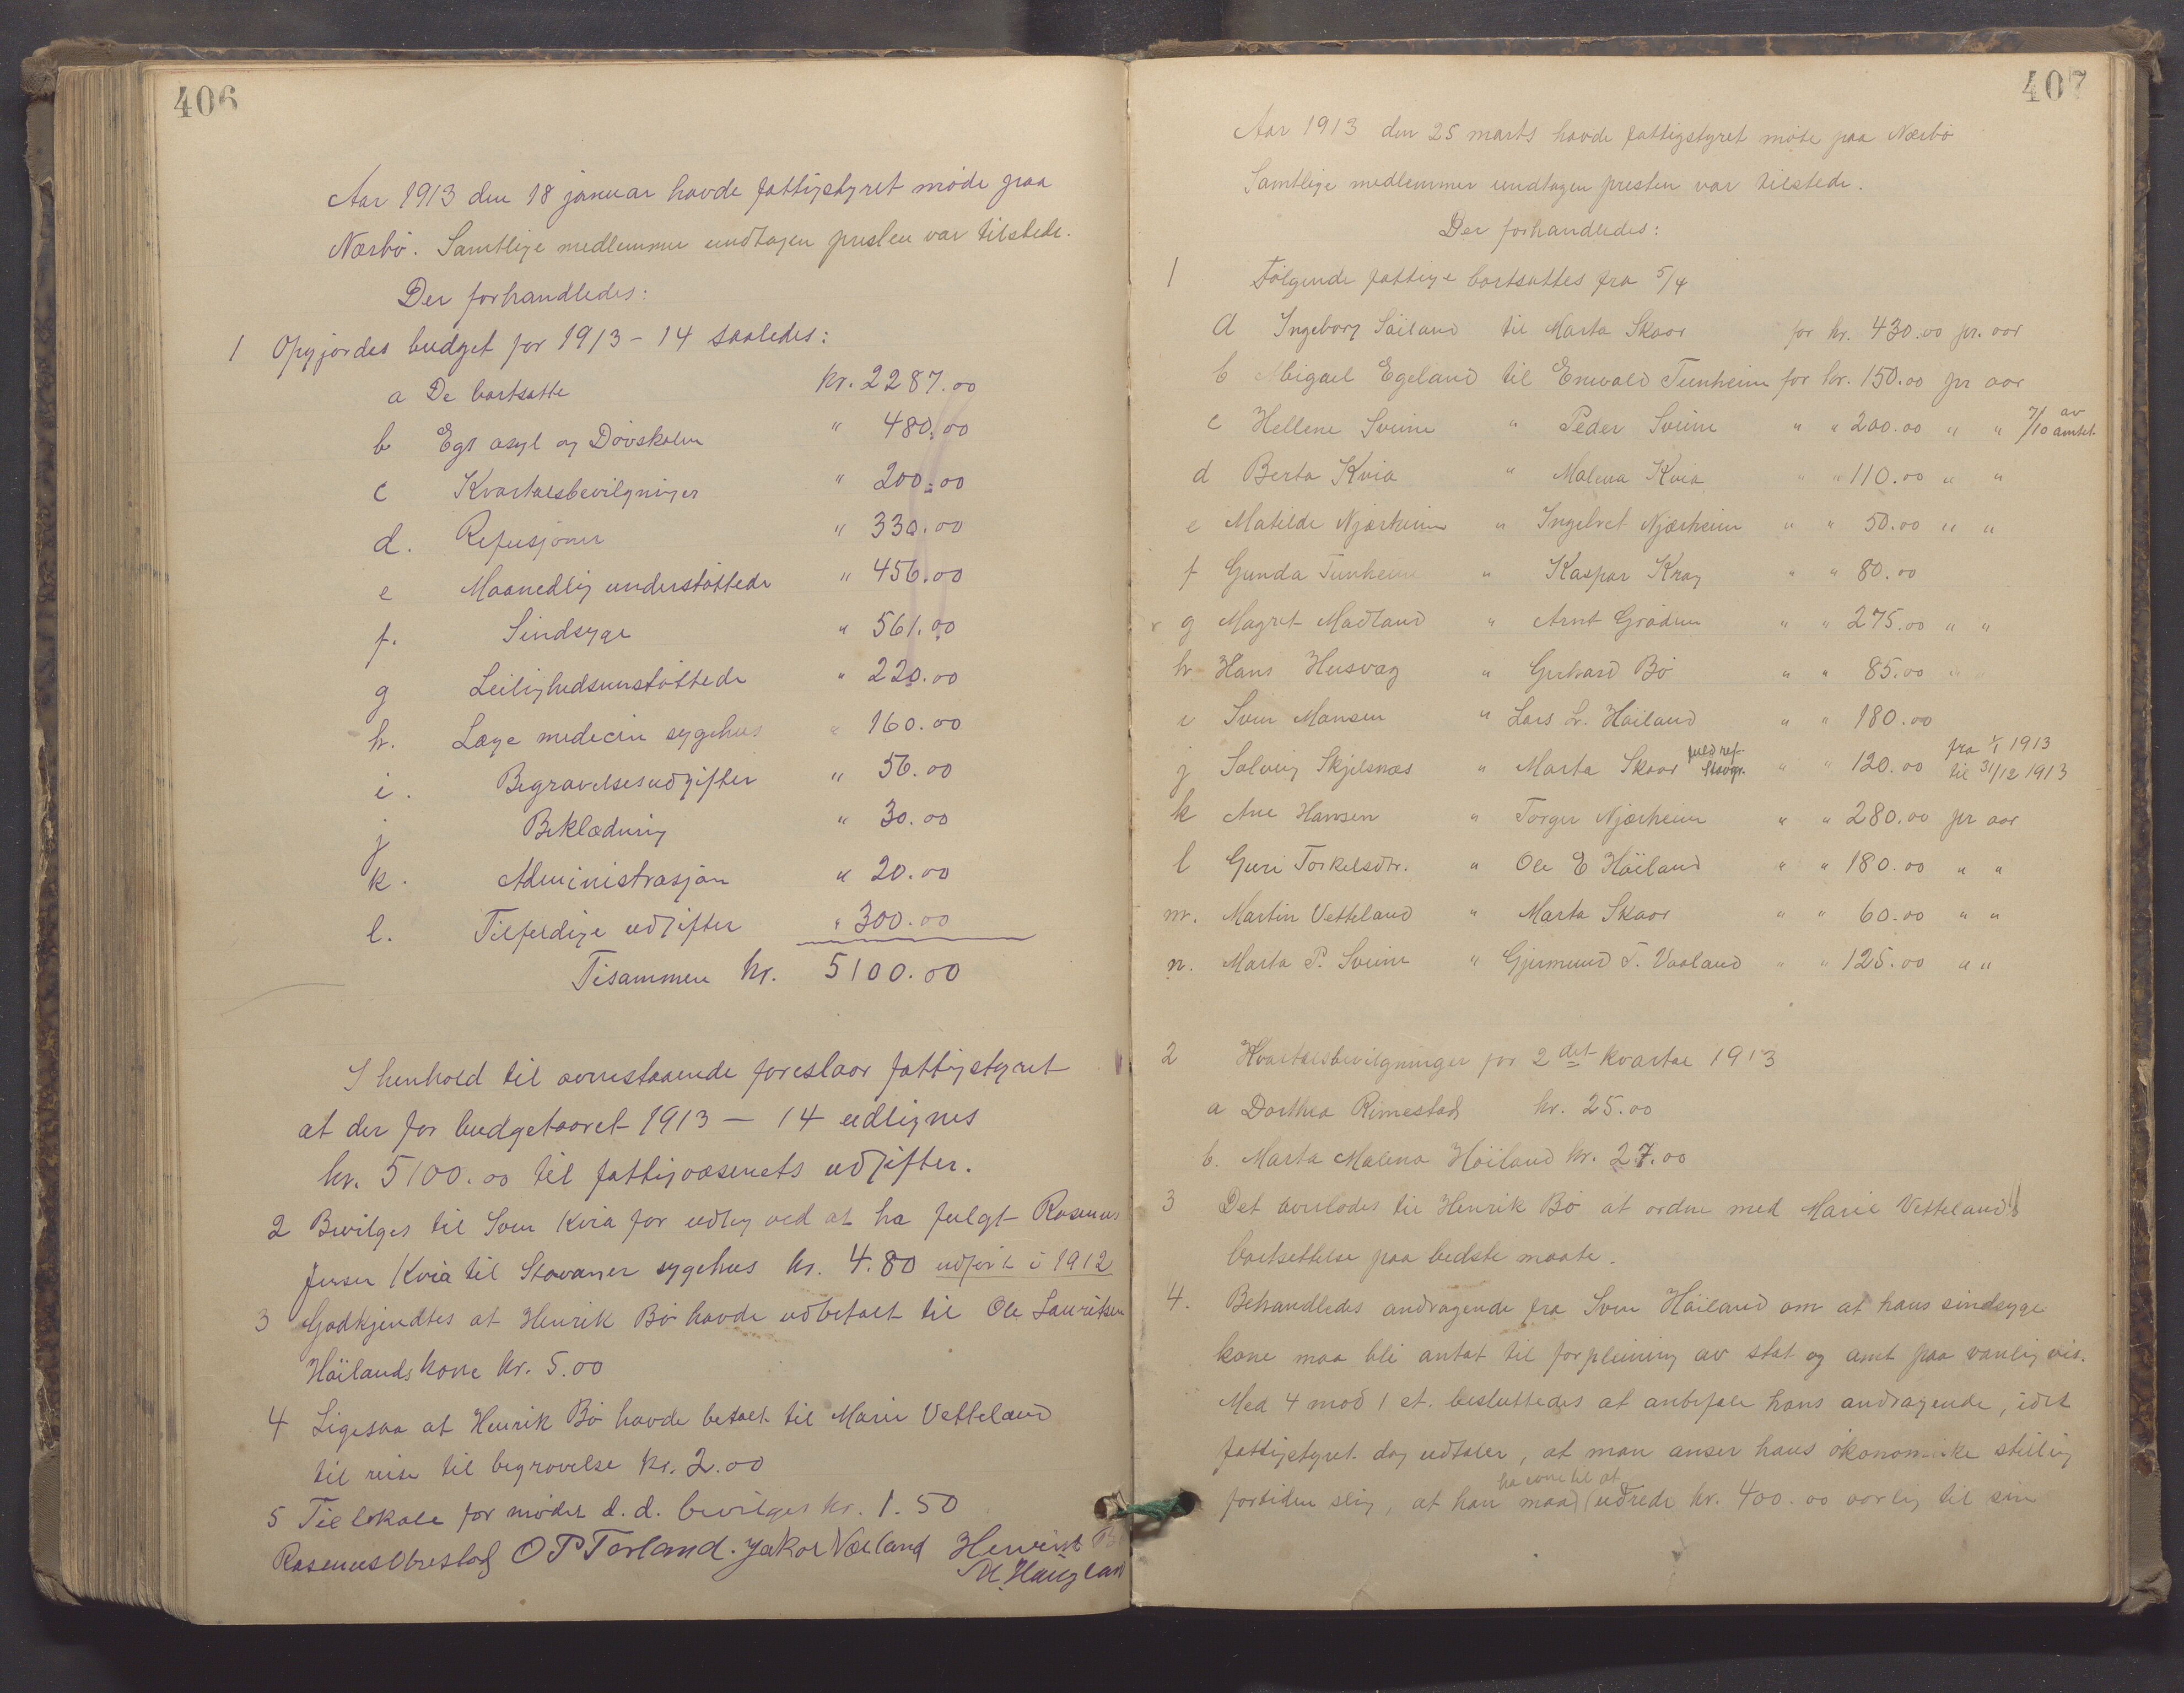 406
Aar 1913 den 18 januar havde fattigstyret møde paa
Nærbø. Samtlige medlemmer undtagen presten var tilstede.
Der forhandledes:
1 Opgjordes budget for 1913-14 saaledes:
a De bortsatte kr. 2287.00
b Egs asyl og Døvskolen " 480.00
c Kvartalsbevilgninger " 200.00
d. Refusjoner " 330.00
e Maanedlig understøttede " 456.00
f. Sindsyge " 561.00
g Leilighedsunstøttede " 220.00
h. Læge medicin sygehus " 160.00
i. Begravelsesudgifter " 56.00
j Beklædning " 30.00
k. Administrasjon " 20.00
l. Tilfeldige udgifter " 300.00
Tisammen kr. 5100.00
I henhold til ovenstaaende foreslaar fattigstyret
at der for budgetaaret 1913 — 14 udlignes
kr. 5100.00 til fattigvæsenets udgifter.
2 Bevilges til Sven Kvia for udlæg ved at ha fulgt Rasmus
Jensen Kvia til Stavanger sygehus kr. 4.80 udført i 1912
3 Godkjendtes at Henrik Bø havde udbetalt til Ole Lauritsen
Høilands kone kr. 5.00
4 Ligesaa at Henrik Bø havde betalt til Marie Vetteland
til reise til begravelse kr. 2.00
5 Til lokale for mødet d. d. bevilges kr. 1.50
Rasmus Obrestad O P Torland. Jakob Væland Henrik B
M. Haugland
407
Aar 1913 den 25 marts havde fattigstyret møte paa Nærbø
Samtlige medlemmer undtagen presten var tilstede.
Der forhandledes:
1 Følgende fattige bortsattes fra 5/4
a Ingeborg Søiland til Marta Skaar for kr. 430.00 pr. aar
b Abigael Egeland til Enevald Tunheim for kr. 150.00 pr aar
c Hellene Sviine " Peder Sviine " " 200.00 " " 7/10 av amtet.
d Berta Kvia " Malena Kvia " " 110.00 " "
e Matilde Njærheim " Ingebret Njærheim " " 50.00 " "
f Gunda Tunheim " Kaspar Krag " " 80.00
g Magret Madland " Arnt Grødem " " 275.00 " "
h Hans Husvæg " Gerhard Bø " " 85.00 " "
i Sven Monsen " Lars L. Høiland " " 180.00
j Solveig Skjelsnæs " Marta Skaar fuld ref. Stavgr. " " 120.00 fra 1/1 1913 til 31/12 1913
k Ane Hansen " Torger Njærheim " " 280.00 pr aar
l Guri Torkelsdtr. " Ole E Høiland " " 180.00 " "
m. Martin Vetteland " Marta Skaar " " 60.00 " "
n. Marta P. Sviine " Gjermund T. Vaaland " " 125.00 " "
2 Kvartalsbevilgninger for 2det kvartal 1913
a Dorthea Rimestad kr. 25.00
b. Marta Malena Høiland kr. 27.00
3 Det overlodes til Henrik Bø at ordne med Marie Vettelands
bortsettelse paa bedste maate.
4. Behandledes andragende fra Sven Høiland om at hans sindsyge
kone maa bli antat til forpleining av stat og amt paa vanlig vis.
Med 4 mod 1 st. besluttedes at anbefale hans andragende, idet
fattigstyret dog udtaler, at man anser hans økonomiske stilling
fortiden slig, at han maa ha evne til at udrede kr. 400.00 aarlig til sin